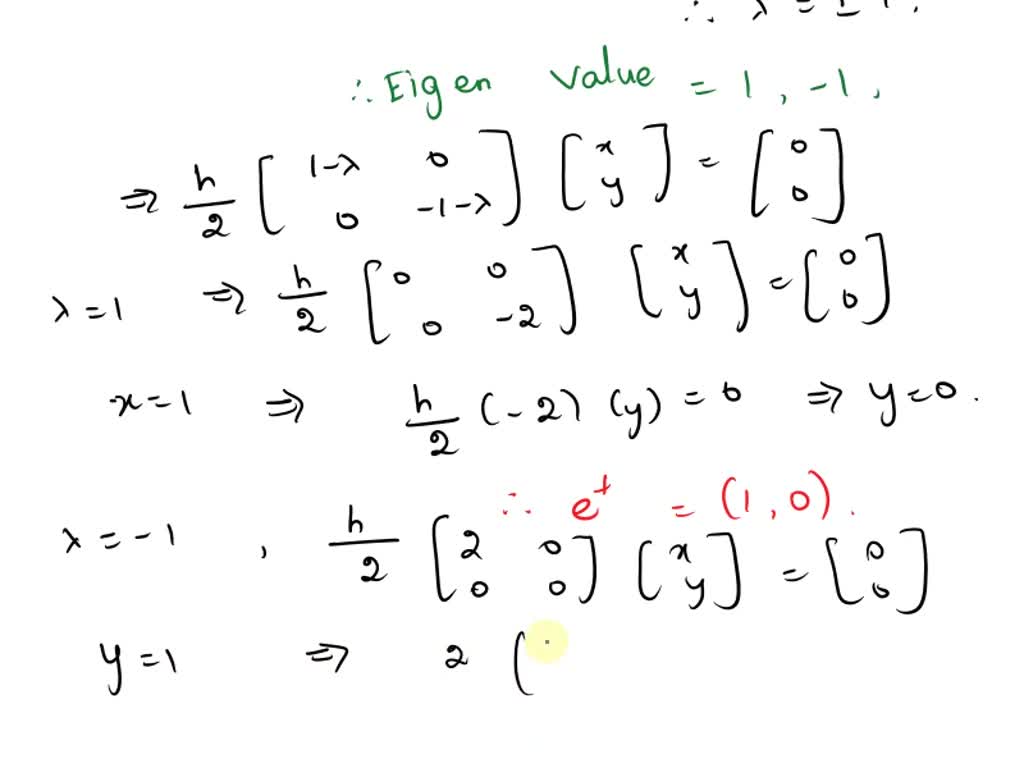 ∴ λ = ±1.
∴ Eigen Value = 1, -1,
⇒ h/2 [1-λ 0; 0 -1-λ] [x; y] = [0; 0]
λ = 1 ⇒ h/2 [0 0; 0 -2] [x; y] = [0; 0]
x = 1 ⇒ h/2 (-2) (y) = 0 ⇒ y = 0.
∴ e⁺ = (1, 0).
λ = -1, h/2 [2 0; 0 0] [x; y] = [0; 0]
y = 1 ⇒ 2 (